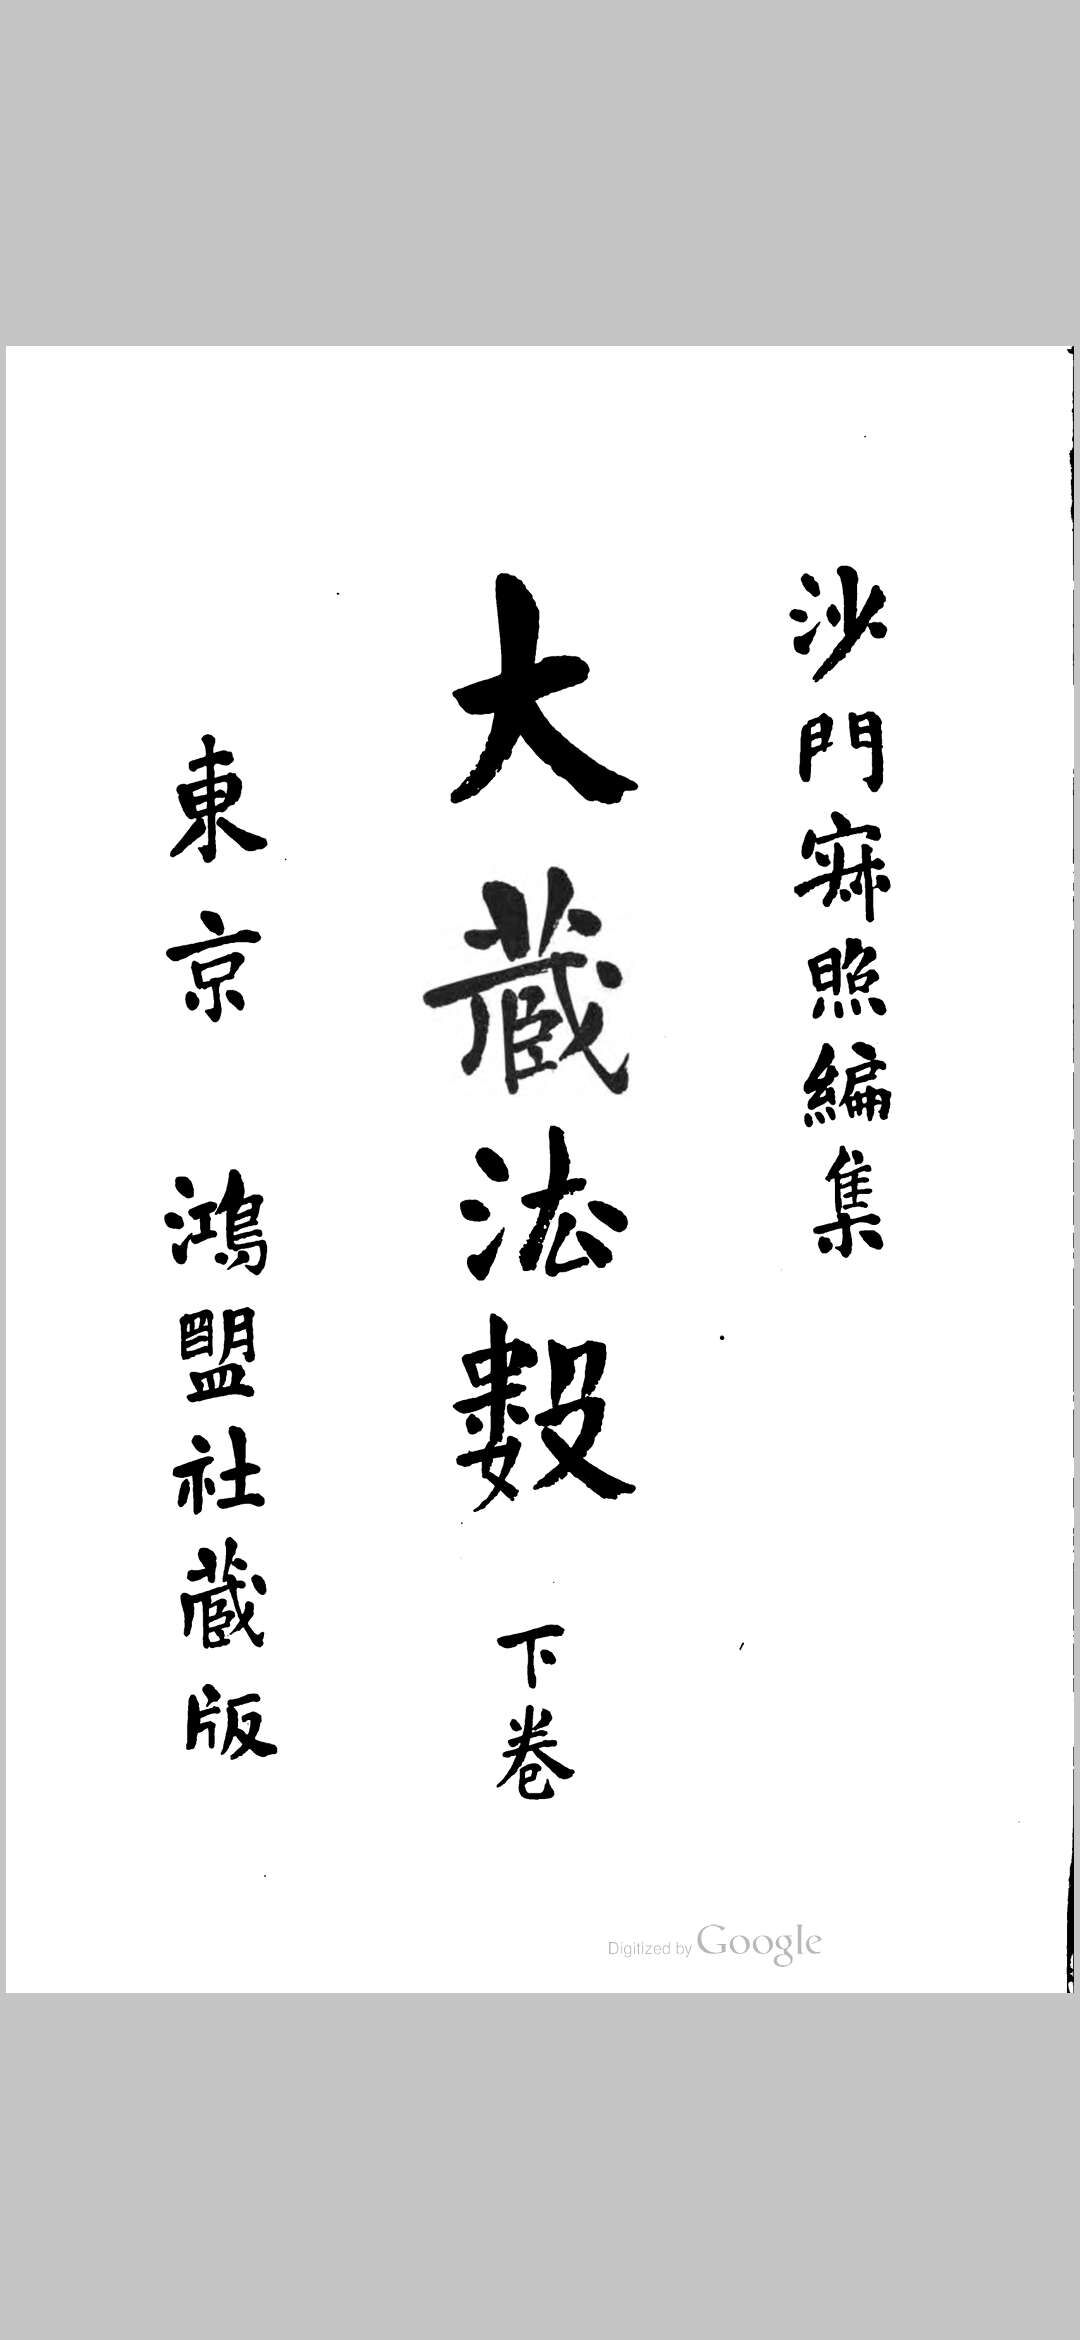 沙門寂照編集
大蔵法數 下卷
東京 鴻盟社蔵版
Digitized by Google